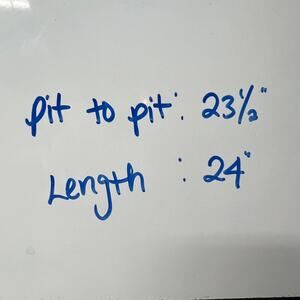 pit to pit: 23½"
Length : 24"